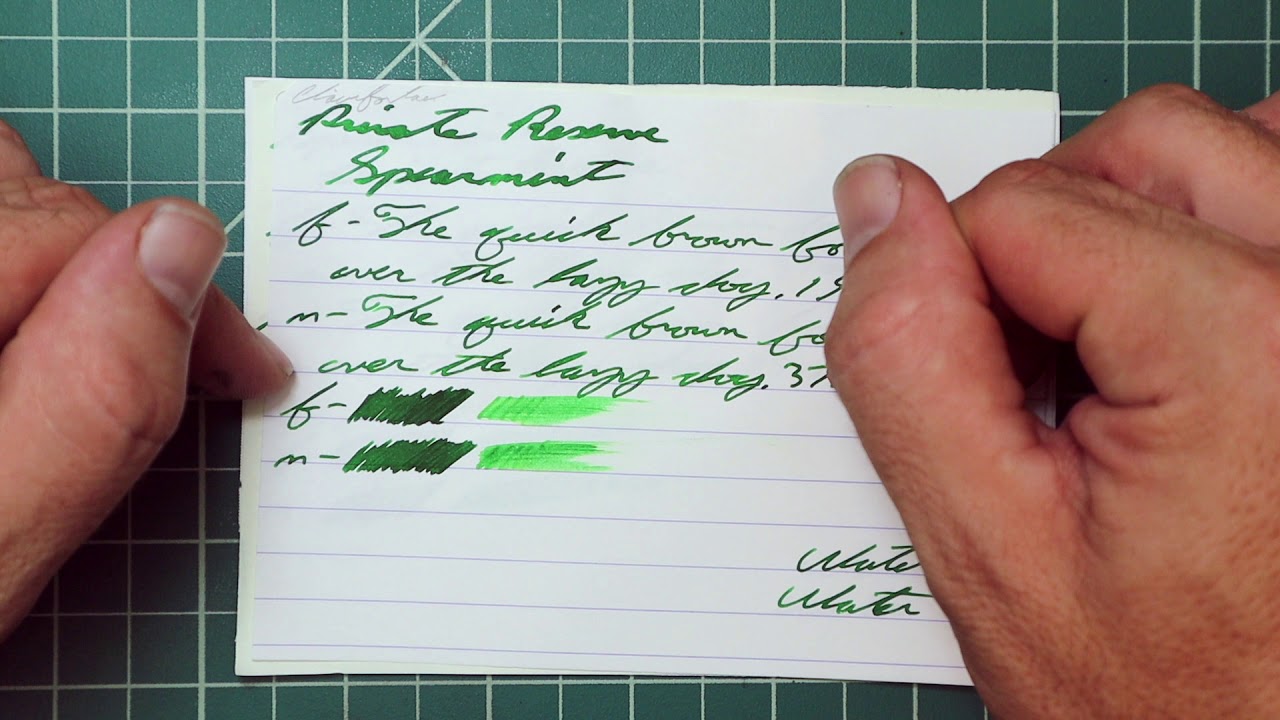 Private Reserve
Spearmint
f - The quick brown fo
over the lazy dog. 19
m - The quick brown fo
over the lazy dog. 37
f -
m -
Wate
Water